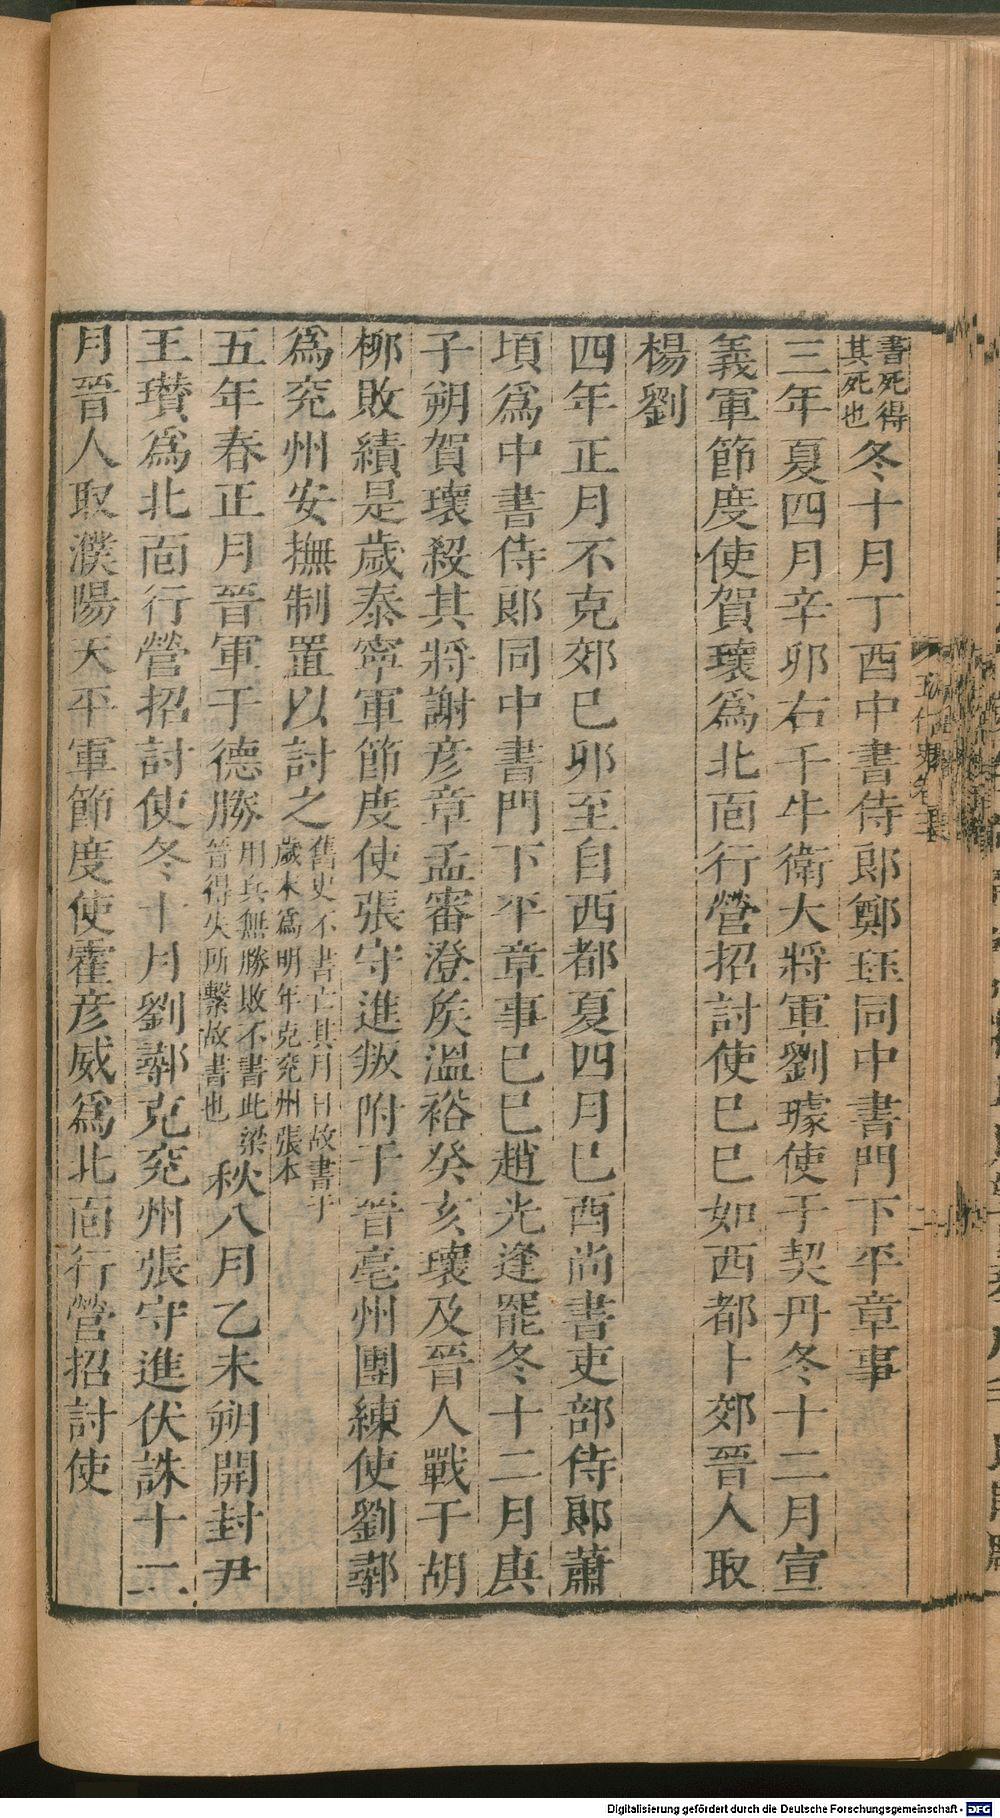 書死得
其死也
冬十月丁酉中書侍郎鄭珏同中書門下平章事
三年夏四月辛卯右千牛衛大將軍劉璩使于契丹冬十二月宣
義軍節度使賀瓌爲北面行營招討使己巳如西都卜郊晉人取
楊劉
四年正月不克郊己卯至自西都夏四月己酉尚書吏部侍郎蕭
頃爲中書侍郎同中書門下平章事己巳趙光逢罷冬十二月庚
子朔賀瓌殺其將謝彦章孟審澄矦溫裕癸亥瓌及晉人戰于胡
柳敗績是歲泰寧軍節度使張守進叛附于晉亳州團練使劉鄩
爲兖州安撫制置以討之
舊史不書亡其月日故書于
歲末爲明年克兖州張本
五年春正月晉軍于德勝
用兵無勝敗不書此梁
晉得失所繫故書也
秋八月乙未朔開封尹
王瓚爲北面行營招討使冬十月劉鄩克兖州張守進伏誅十二
月晉人取濮陽天平軍節度使霍彦威爲北面行營招討使
五代史卷三
Digitalisierung gefördert durch die Deutsche Forschungsgemeinschaft - DFG